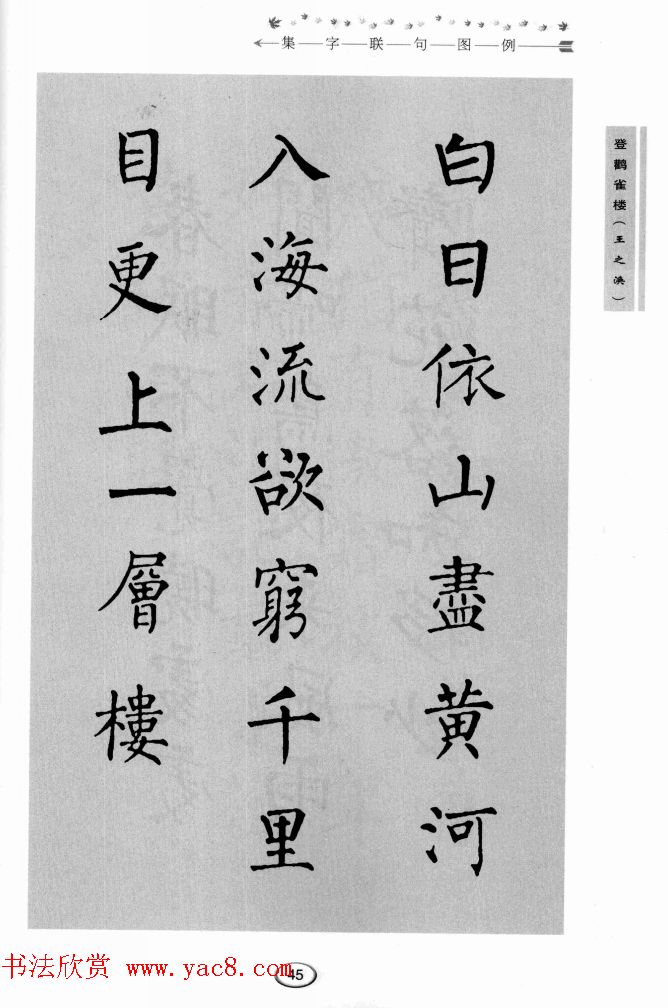 集字联句图例
登鹳雀楼（王之涣）
白日依山盡黄河
入海流欲窮千里
目更上一層樓
书法欣赏 www.yac8.com
45